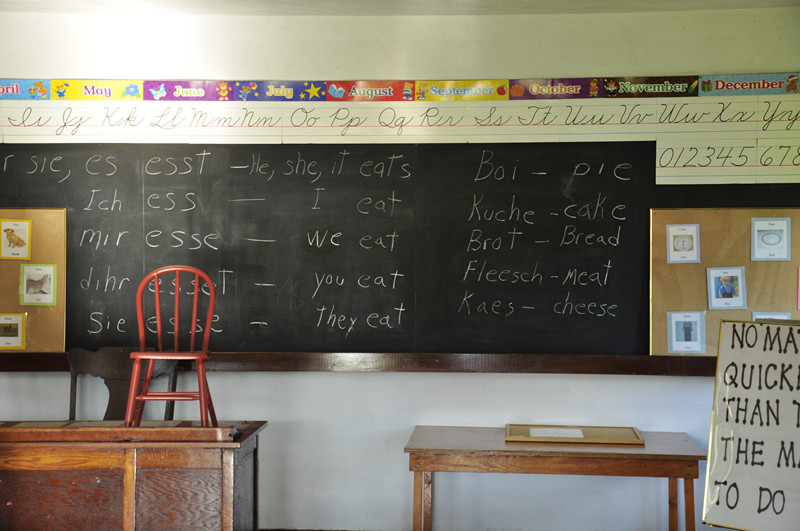 May June July August September October November December
Ii Jj Kk Ll Mm Nn Oo Pp Qq Rr Ss Tt Uu Vv Ww Xx Yy
0 1 2 3 4 5 6 7 8
r sie, es esst — He, she, it eats
Ich ess — I eat
mir esse — we eat
dihr esset — you eat
Sie esse = they eat
Boi — pie
Kuche - cake
Brot — Bread
Fleesch - meat
Kaes — cheese
NO MA
QUICK
THAN T
THE MA
TO DO